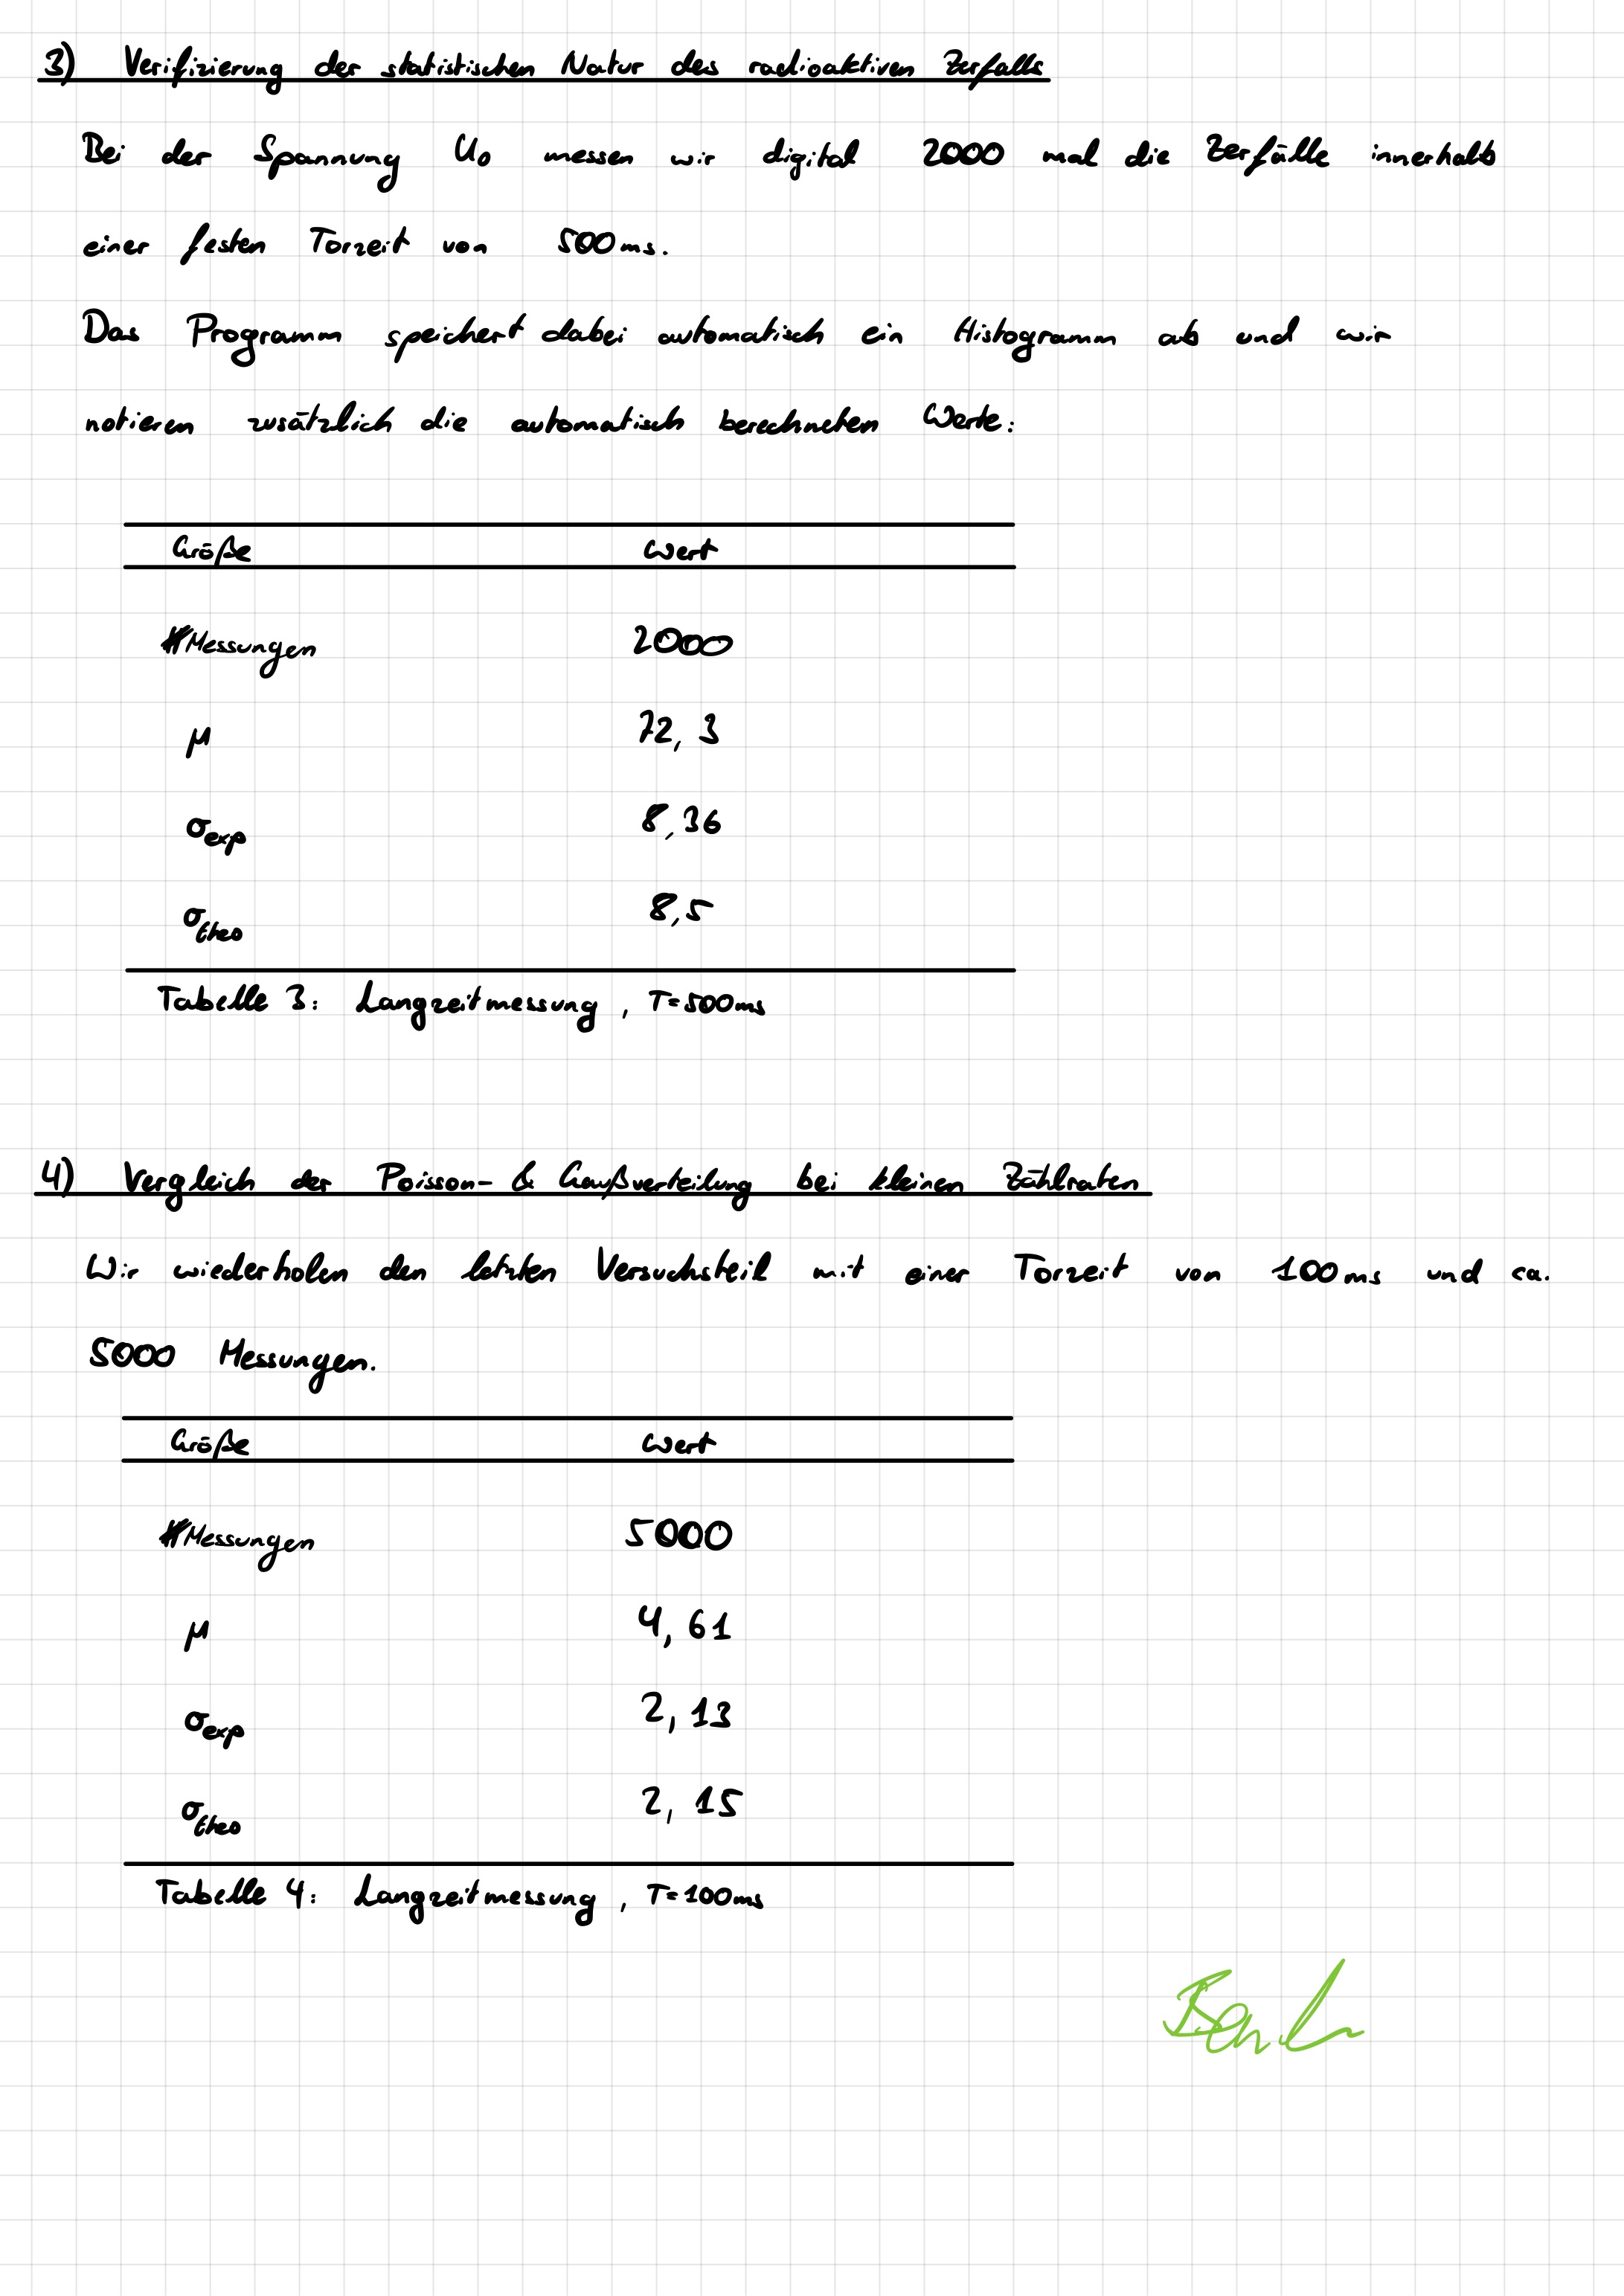 3) Verifizierung der statistischen Natur des radioaktiven Zerfalls
Bei der Spannung U₀ messen wir digital 2000 mal die Zerfälle innerhalb
einer festen Torzeit von 500ms.
Das Programm speichert dabei automatisch ein Histogramm ab und wir
notieren zusätzlich die automatisch berechneten Werte:
Größe Wert
#Messungen 2000
μ 72,3
σexp 8,36
σtheo 8,5
Tabelle 3: Langzeitmessung, T=500ms
4) Vergleich der Poisson- & Gaußverteilung bei kleinen Zählraten
Wir wiederholen den letzten Versuchsteil mit einer Torzeit von 100ms und ca.
5000 Messungen.
Größe Wert
#Messungen 5000
μ 4,61
σexp 2,13
σtheo 2,15
Tabelle 4: Langzeitmessung, T=100ms